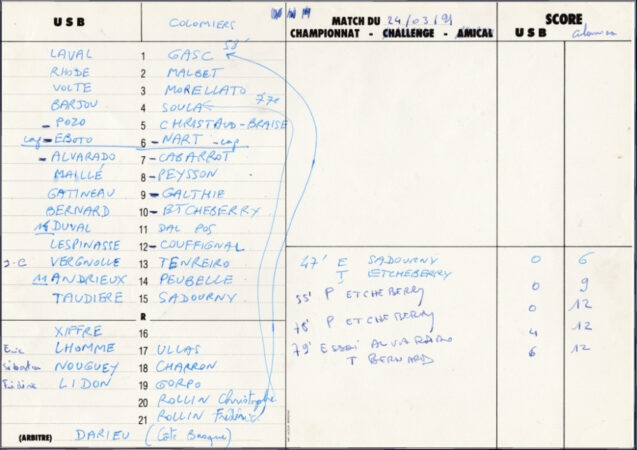 USB COLOMIERS MATCH DU 24/03/91 SCORE
CHAMPIONNAT - CHALLENGE - AMICAL USB
55'
LAVAL 1 GASC
RHODE 2 MALBET
VOLTE 3 MORELLATO
BARJOU 4 SOULA 77e
- POZO 5 CHRISTAUD-BRAISE
cap - EBOTO 6 - NART - cap
- ALVARADO 7 - CABARROT
MAILLÉ 8 - PEYSSON
GATINEAU 9 - GALTHIE
BERNARD 10 - ETCHEBERRY
DUVAL 11 DAL POS
LESPINASSE 12 - COUFFIGNAL
J-C VERGNOLLE 13 TENREIRO
M ANDRIEUX 14 PEUBELLE
TAUDIERE 15 SADOURNY
R
XIFFRÉ 16
Eric LHOMME 17 ULLAS
Sébastien NOUGUEY 18 CHARRON
Frédéric LIDON 19 GORPO
20 ROLLIN Christophe
21 ROLLIN Frédéric
(ARBITRE) DARIEU (Côte Basque)
47' E SADOURNY 0 6
T ETCHEBERRY
55' P ETCHEBERRY 0 9
78' P ETCHEBERRY 0 12
79' ESSAI ALVARADO 4 12
T BERNARD 6